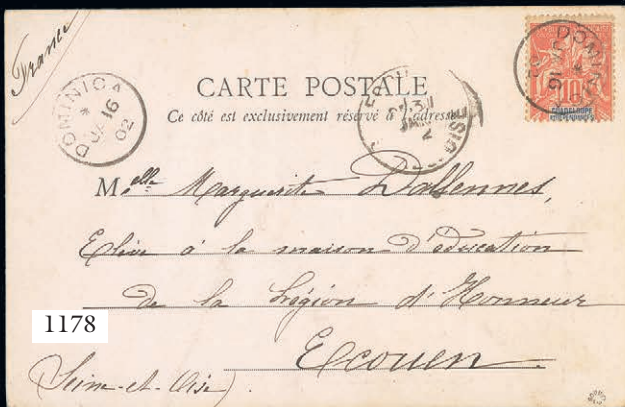 France
DOMINICA
JA 16
02
CARTE POSTALE
Ce côté est exclusivement réservé à l'adresse
DOMIN
10
GUADELOUPE
OISE
Melle Marguerite Dallennes,
Elève à la maison d'éducation
de la Légion d'Honneur
1178
Ecouen.
(Seine-et-Oise).